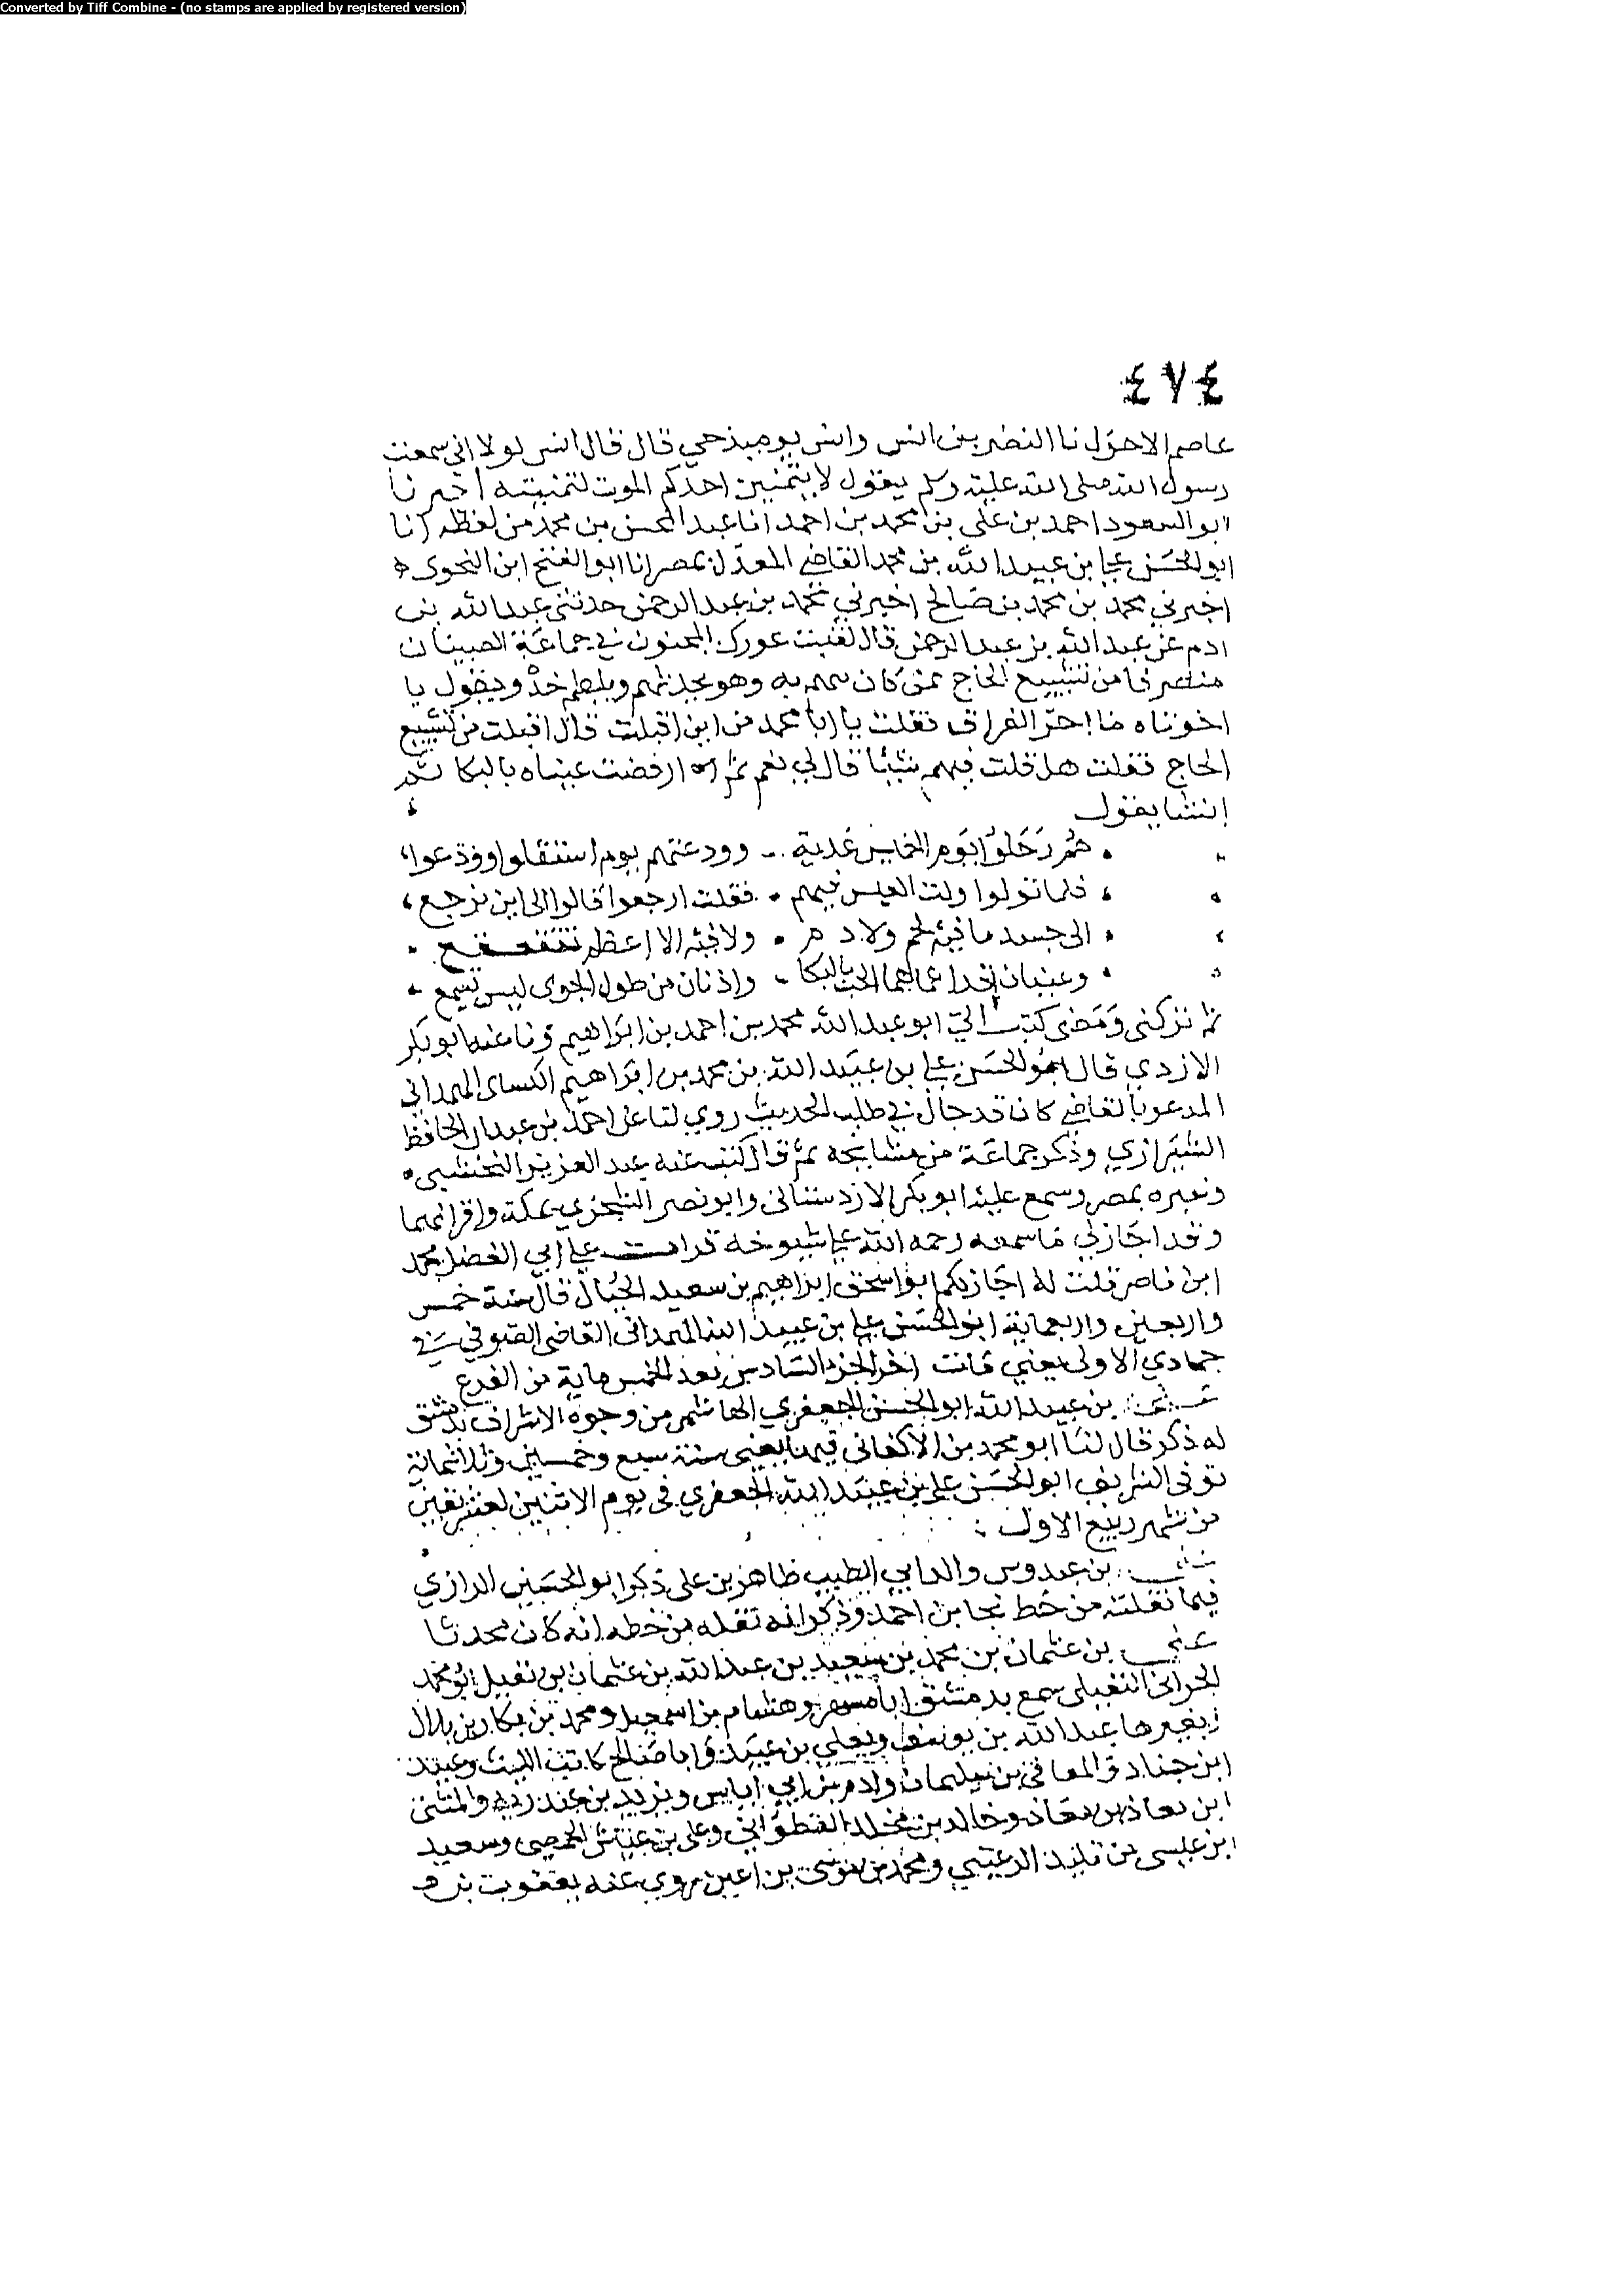 Converted by Tiff Combine - (no stamps are applied by registered version)
٤٧٤
عاصم الاحول نا النضر بن انس وانس يوميذ حي قال قال انس لولا اني سمعت
رسول الله صلى الله عليه وسلم يقول لا يتمنين احدكم الموت لتمنيته اخبرنا
ابو السعود احمد بن علي بن محمد بن احمد انا عبد المحسن بن محمد من لفظه انا
ابو الحسن علي بن عبيد الله بن محمد القاضي المعدل بمصر انا ابو الفتح ابن النحوي
اخبرني محمد بن محمد بن صالح اخبرني محمد بن عبد الرحمن حدثني عبد الله بن
ادم عن عبد الله بن عبد الرحمن قال لقيت عورك المجنون في جماعة الصبيان
منصرفا من تشييع الحاج وهو يجذبهم ويلطم خده ويقول يا
اخوتاه ما احر الفراق فقلت يا ابا محمد من اين اقبلت قال اقبلت من تشييع
الحاج فقلت هل قلت فيهم شيئا قال لي نعم ثم ارفضت عيناه بالبكا ثم
انشا يقول
هم رحلوا يوم الخميس غدية وودعتهم يوم استقلوا وودعوا
فلما تولوا ولت العيس فيهم فقلت ارجعوا قالوا الى اين نرجع
الى جسد ما فيه لحم ولا دم ولا فيه الا اعظم تتقعقع
وعينان بالبكا واذنان من طول الجوى ليس تسمع
ثم تركني ومضى كتب الي ابو عبد الله محمد بن احمد بن ابراهيم ونا عنه ابو بكر
الازدي قال ابو الحسن علي بن عبيد الله بن محمد بن ابراهيم الكساي الهمداني
المدعو بالقاضي كان قد جال في طلب الحديث روي لنا عن احمد بن عبدان الحافظ
الشيرازي وذكر جماعة من مشايخه ثم قال كتب عنه عبد العزيز النخشبي
وغيره بمصر وسمع عليه ابو بكر وابو نصر السجزي بمكة واقرانهما
وقد اجاز لي ما سمعه رحمه الله على شيوخه قرات علي ابي الفضل محمد
ابن ناصر قلت له اجاز لكم ابو اسحق ابراهيم بن سعيد الحبال قال سنة خمس
واربعين واربعماية ابو الحسن علي بن عبيد الله الهمداني القاضي الصوفي في
جمادي الاولى يعني مات اخر الجزء السادس بعد الخمس ماية من الفرع
علي بن عبيد الله ابو الحسن الجعفري الهاشمي من وجوه الاشراف بدمشق
له ذكر قال لنا ابو محمد بن الاكفاني فيها يعني سنة سبع وخمسين وثلاثماية
توفي الشريف ابو الحسن علي بن عبيد الله الجعفري في يوم الاثنين لعشر بقين
من شهر ربيع الاول
علي بن عبدوس والد ابي الطيب طاهر بن علي ذكر ابو الحسين الرازي
فيما نقلته من خط نجا بن احمد وذكر انه نقله من خطه انه كان محدثا
علي بن عثمان بن محمد بن سعيد بن عبد الله بن عثمان بن نفيل ابو محمد
الحراني النفيلي سمع بدمشق ابا مسهر وهشام بن اسمعيل ومحمد بن بكار بن بلال
وبغيرها عبد الله بن يوسف ويعلي بن عبيد وابا صالح كاتب الليث وعبيد
ابن جناد والمعافي بن سليمان وادم بن ابي اياس ويزيد بن عبد ربه والمثنى
ابن معاذ بن معاذ وخالد بن مخلد القطواني وعلي بن عياش الحمصي وسعيد
ابن عيسى بن تليد الرعيني ومحمد بن موسى بن اعين روي عنه يعقوب بن